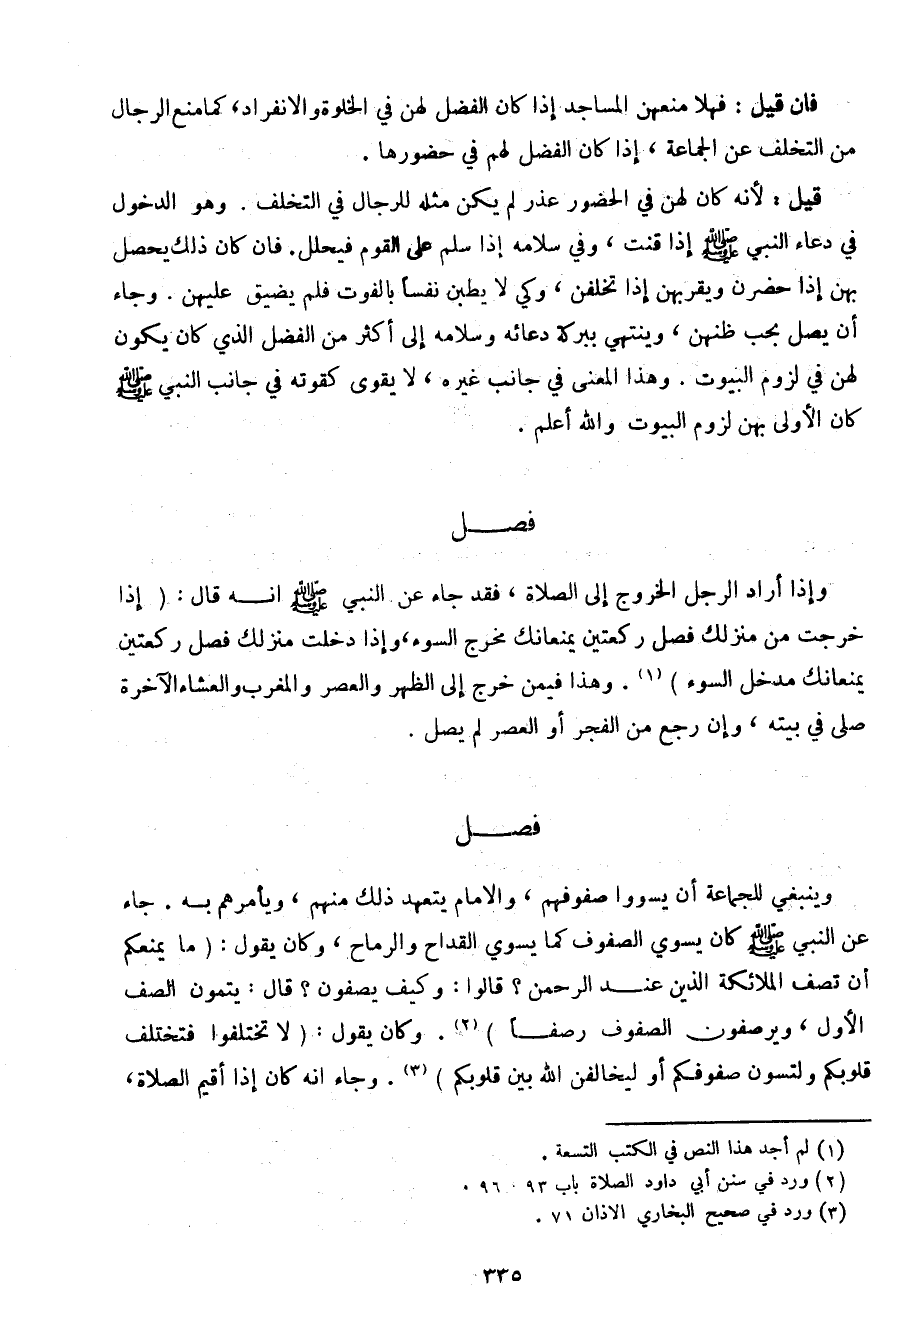 فان قيل : فهلا منعهن المساجد إذا كان الفضل لهن في الخلوة والانفراد، كما منع الرجال
من التخلف عن الجماعة ، إذا كان الفضل لهم في حضورها .
قيل : لأنه كان لهن في الحضور عذر لم يكن مثله للرجال في التخلف . وهو الدخول
في دعاء النبي ﷺ إذا قنت ، وفي سلامه إذا سلم على القوم فيحلل. فان كان ذلك يحصل
بهن إذا حضرن ويقربهن إذا تخلفن ، وكي لا يطبن نفساً بالفوت فلم يضيق عليهن . وجاء
أن يصل بحب ظنهن ، وينتهي ببركة دعائه وسلامه إلى أكثر من الفضل الذي كان يكون
لهن في لزوم البيوت . وهذا المعنى في جانب غيره ، لا يقوى كقوته في جانب النبي ﷺ
كان الأولى بهن لزوم البيوت والله أعلم .
فصـــل
وإذا أراد الرجل الخروج إلى الصلاة ، فقد جاء عن النبي ﷺ انـــه قال : ( إذا
خرجت من منزلك فصل ركعتين يمنعانك مخرج السوء، وإذا دخلت منزلك فصل ركعتين
يمنعانك مدخل السوء ) (١) . وهذا فيمن خرج إلى الظهر والعصر والمغرب والعشاء الآخرة
صلى في بيته ، وإن رجع من الفجر أو العصر لم يصل .
فصـــل
وينبغي للجماعة أن يسووا صفوفهم ، والامام يتعهد ذلك منهم ، ويأمرهم بـه . جاء
عن النبي ﷺ كان يسوي الصفوف كما يسوي القداح والرماح ، وكان يقول : ( ما يمنعكم
أن تصف الملائكة الذين عنـــد الرحمن ؟ قالوا : وكيف يصفون ؟ قال : يتمون الصف
الأول ، ويرصفون الصفوف رصفـــاً ) (٢) . وكان يقول : ( لا تختلفوا فتختلف
قلوبكم ولتسون صفوفكم أو ليخالفن الله بين قلوبكم ) (٣) . وجاء انه كان إذا أقيم الصلاة،
(١) لم أجد هذا النص في الكتب التسعة .
(٢) ورد في سنن أبي داود الصلاة باب ٩٣ ٠ ٩٦ .
(٣) ورد في صحيح البخاري الاذان ٧١ .
٣٣٥